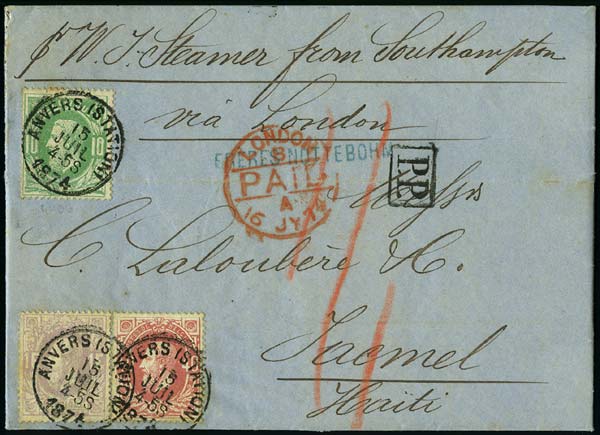 pr W. I. Steamer from Southampton
via London
ANVERS (STATION)
15
JUIL
4-5S
1874
10
LONDON
S
PAID
A
16 JY 74
FRERES NOTTEBOHM
PD
Messrs
C. Laloubère & C.
Jacmel
Haïti
ANVERS (STATION)
15
JUIL
4-5S
1874
ANVERS (STATION)
15
JUIL
4-5S